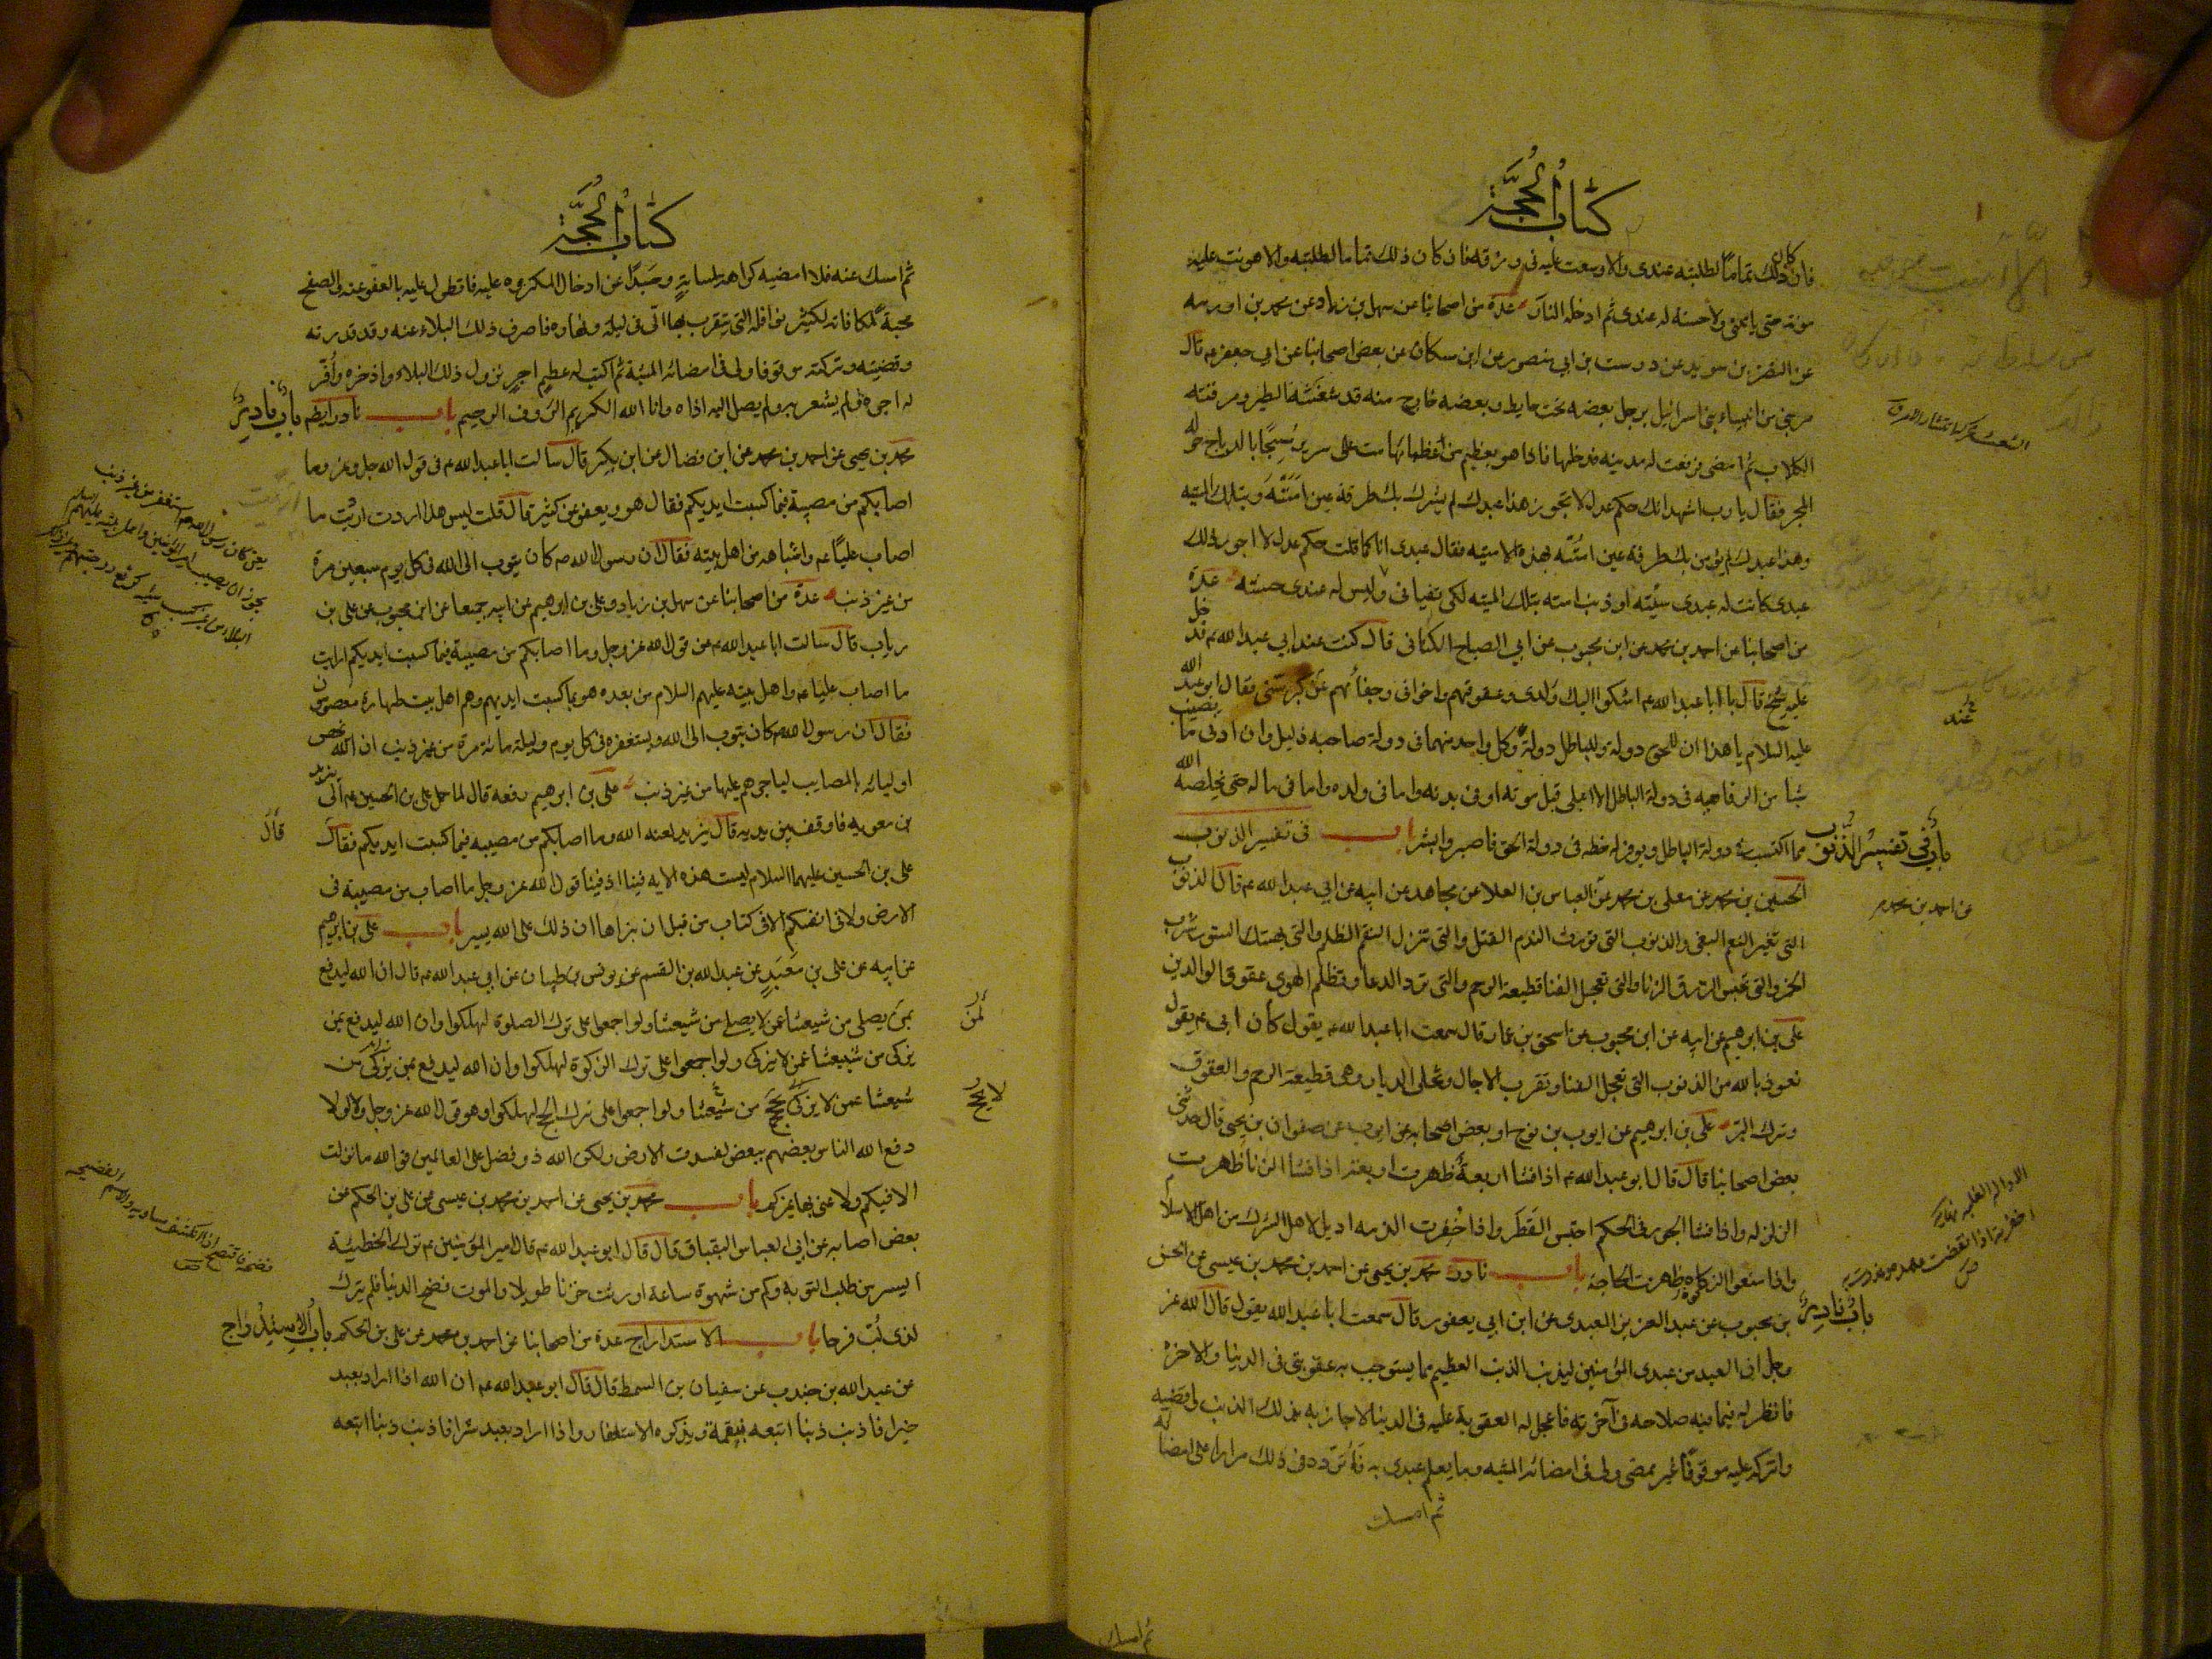 كتاب الحجة
فان كان ذلك تماما لطلبته عندى والا وسعت عليه فى رزقه فان كان ذلك تماما لطلبته والا هونت عليه
موته حتى ياتينى ولا حسنة له عندى ثم ادخله النار عدة من اصحابنا عن سهل بن زياد عن محمد بن اورمه
عن النضر بن سويد عن درست بن ابى منصور عن ابن مسكان عن بعض اصحابنا عن ابى جعفر ع قال
مر نبى من انبياء بنى اسرائيل برجل بعضه تحت حايط وبعضه خارج منه قد شعثته الطير ومزقته
الكلاب ثم مضى فرفعت له مدينة فدخلها فاذا هو بعظيم من عظمائها ميت على سرير مسجا بالديباج حوله
المجمر فقال يا رب اشهد انك حكم عدل لا تجور هذا عبدك لم يشرك بك طرفة عين امته بتلك الميته
وهذا عبدك لم يؤمن بك طرفة عين امته بهذه الميته فقال عبدى انا كما قلت حكم عدل لا اجور ذلك
عبدى كانت له عندى سيئة او ذنب امته بتلك الميته لكى يلقانى وليس له عندى حسنه عدة
من اصحابنا عن احمد بن محمد عن ابن محبوب عن ابى الصباح الكنانى قال كنت عند ابى عبد الله ع فدخل
عليه شيخ قال يا ابا عبد الله ع اشكو اليك ولدى وعقوقهم واخوانى وجفائهم عند كبر سنى فقال ابو عبد الله
عليه السلام يا هذا ان للحق دولة وللباطل دولة وكل واحد منهما فى دولة صاحبه ذليل وان ادنى ما يصيب
شيئا من الرفاهيه فى دولة الباطل الا ابتلى قبل موته او فى بدنه واما فى ولده واما فى ماله حتى يخلصه الله
مما اكتسب فى دولة الباطل ويوفر له حظه فى دولة الحق فاصبر وابشر باب فى تفسير الذنوب
باب فى تفسير الذنوب
الحسين بن محمد عن معلى بن محمد عن العباس بن العلا عن مجاهد عن ابيه عن ابى عبد الله ع قال الذنوب
التى تغير النعم البغى والذنوب التى تورث الندم القتل والتى تنزل النقم الظلم والتى تهتك الستور شرب
الخمر والتى تحبس الرزق الزنا والتى تعجل الفنا قطيعة الرحم والتى ترد الدعا وتظلم الهوى عقوق الوالدين
على بن ابرهيم عن ابيه عن ابن محبوب عن اسحق بن عمار قال سمعت ابا عبد الله ع يقول كان ابى ع يقول
نعوذ بالله من الذنوب التى تعجل الفنا وتقرب الاجال وتخلى الديار وهى قطيعة الرحم والعقوق
وترك البر على بن ابرهيم عن ايوب بن نوح او بعض اصحابه عن ايوب عن صفوان بن يحيى قال حدثنى
بعض اصحابنا قال قال ابو عبد الله ع اذا فشا اربعة ظهرت اربعة اذا فشا الزنا ظهرت
الزلزله واذا فشا الجور فى الحكم احتبس القطر واذا خفرت الذمه اديل لاهل الشرك من اهل الاسلام
واذا منعوا الزكاه ظهرت الحاجة باب نادر محمد بن يحيى عن احمد بن محمد بن عيسى عن الحسن
باب نادر
بن محبوب عن عبد العزيز العبدى عن ابن ابى يعفور قال سمعت ابا عبد الله يقول قال الله عز
وجل ان العبد من عبيدى المؤمنين ليذنب الذنب العظيم مما يستوجب به عقوبتى فى الدنيا والاخرة
فانظر له فيما فيه صلاحه فى آخرته فاعجل له العقوبة عليه فى الدنيا لاجازيه بذلك الذنب واقضيه
واتركه عليه موقوفا غير ممضى ولى فى امضائه المشيه وما يعلم عبدى به فاتردد فى ذلك مرارا على امضائه
ثم امسك
عن احمد بن محمد
ثم امسك
كتاب الحجة
ثم امسك عنه فلا امضيه كراهة لمساءته وحيدا عن ادخال المكروه عليه فاتطول عليه بالعفو عنه والصفح
محبة لمكافاته لكثير نوافله التى يتقرب بها الى فى ليله ونهاره فاصرف ذلك البلاء عنه وقد قدرته
وقضيته وتركته موقوفا ولى فى امضائه المشية ثم اكتب له عظيم اجر نزول ذلك البلاء واذخره واوفر
له اجره ولم يشعر به ولم يصل اليه اذاه وانا الله الكريم الرؤف الرحيم باب نادر ايضا
باب نادر
محمد بن يحيى عن احمد بن محمد عن ابن فضال عن ابن بكير قال سالت ابا عبد الله ع فى قول الله جل وعز وما
اصابكم من مصيبة فبما كسبت ايديكم فقال هو ويعفو عن كثير قال قلت ليس هذا اردت ارايت ما
اصاب عليا ع واشباهه من اهل بيته فقال ان رسول الله ص كان يتوب الى الله فى كل يوم سبعين مرة
من غير ذنب عدة من اصحابنا عن سهل بن زياد وعلى بن ابرهيم عن ابيه جميعا عن ابن محبوب عن على بن
رياب قال سالت ابا عبد الله ع عن قول الله عز وجل وما اصابكم من مصيبة فبما كسبت ايديكم ارايت
ما اصاب عليا ع واهل بيته عليهم السلام من بعده هو بما كسبت ايديهم وهم اهل بيت طهارة معصومون
فقال ان رسول الله ص كان يتوب الى الله ويستغفره فى كل يوم وليلة مائة مرة من غير ذنب ان الله يخص
اوليائه بالمصايب لياجرهم عليها من غير ذنب على بن ابرهيم رفعه قال لما حمل على بن الحسين ع الى يزيد
بن معويه فاوقف بين يديه قال يزيد لعنه الله وما اصابكم من مصيبه فبما كسبت ايديكم فقال
قال
على بن الحسين عليهما السلام ليست هذه الايه فينا ان فينا قول الله عز وجل ما اصاب من مصيبة فى
الارض ولا فى انفسكم الا فى كتاب من قبل ان نبراها ان ذلك على الله يسير باب على بن ابرهيم
عن ابيه عن على بن معبد عن عبد الله بن القسم عن يونس بن ظبيان عن ابى عبد الله ع قال ان الله ليدفع
بمن يصلى من شيعتنا عمن لا يصلى من شيعتنا ولو اجمعوا على ترك الصلوة لهلكوا وان الله ليدفع بمن
لمن
يزكى من شيعتنا عمن لا يزكى ولو اجمعوا على ترك الزكوة لهلكوا وان الله ليدفع بمن يزكى من
شيعتنا عمن لا يزكى يحج من شيعتنا ولو اجمعوا على ترك الحج لهلكوا وهو قول الله عز وجل ولولا
لا يحج
دفع الله الناس بعضهم ببعض لفسدت الارض ولكن الله ذو فضل على العالمين فو الله ما نزلت
الا فيكم ولا عنى بها غيركم باب محمد بن يحيى عن احمد بن محمد بن عيسى عن على بن الحكم عن
بعض اصحابه عن ابى العباس البقباق قال قال ابو عبد الله ع قال امير المؤمنين ع ترك الخطيئة
ايسر من طلب التوبه وكم من شهوة ساعة اورثت حزنا طويلا والموت فضح الدنيا فلم يترك
لذى لب فرحا باب الاستدراج عدة من اصحابنا عن احمد بن محمد عن على بن الحكم
باب الاستدراج
عن عبد الله بن جندب عن سفيان بن السمط قال قال ابو عبد الله ع ان الله اذا اراد بعبد
خيرا فاذنب ذنبا اتبعه بنقمة ويذكره الاستغفار واذا اراد بعبد شرا فاذنب ذنبا اتبعه